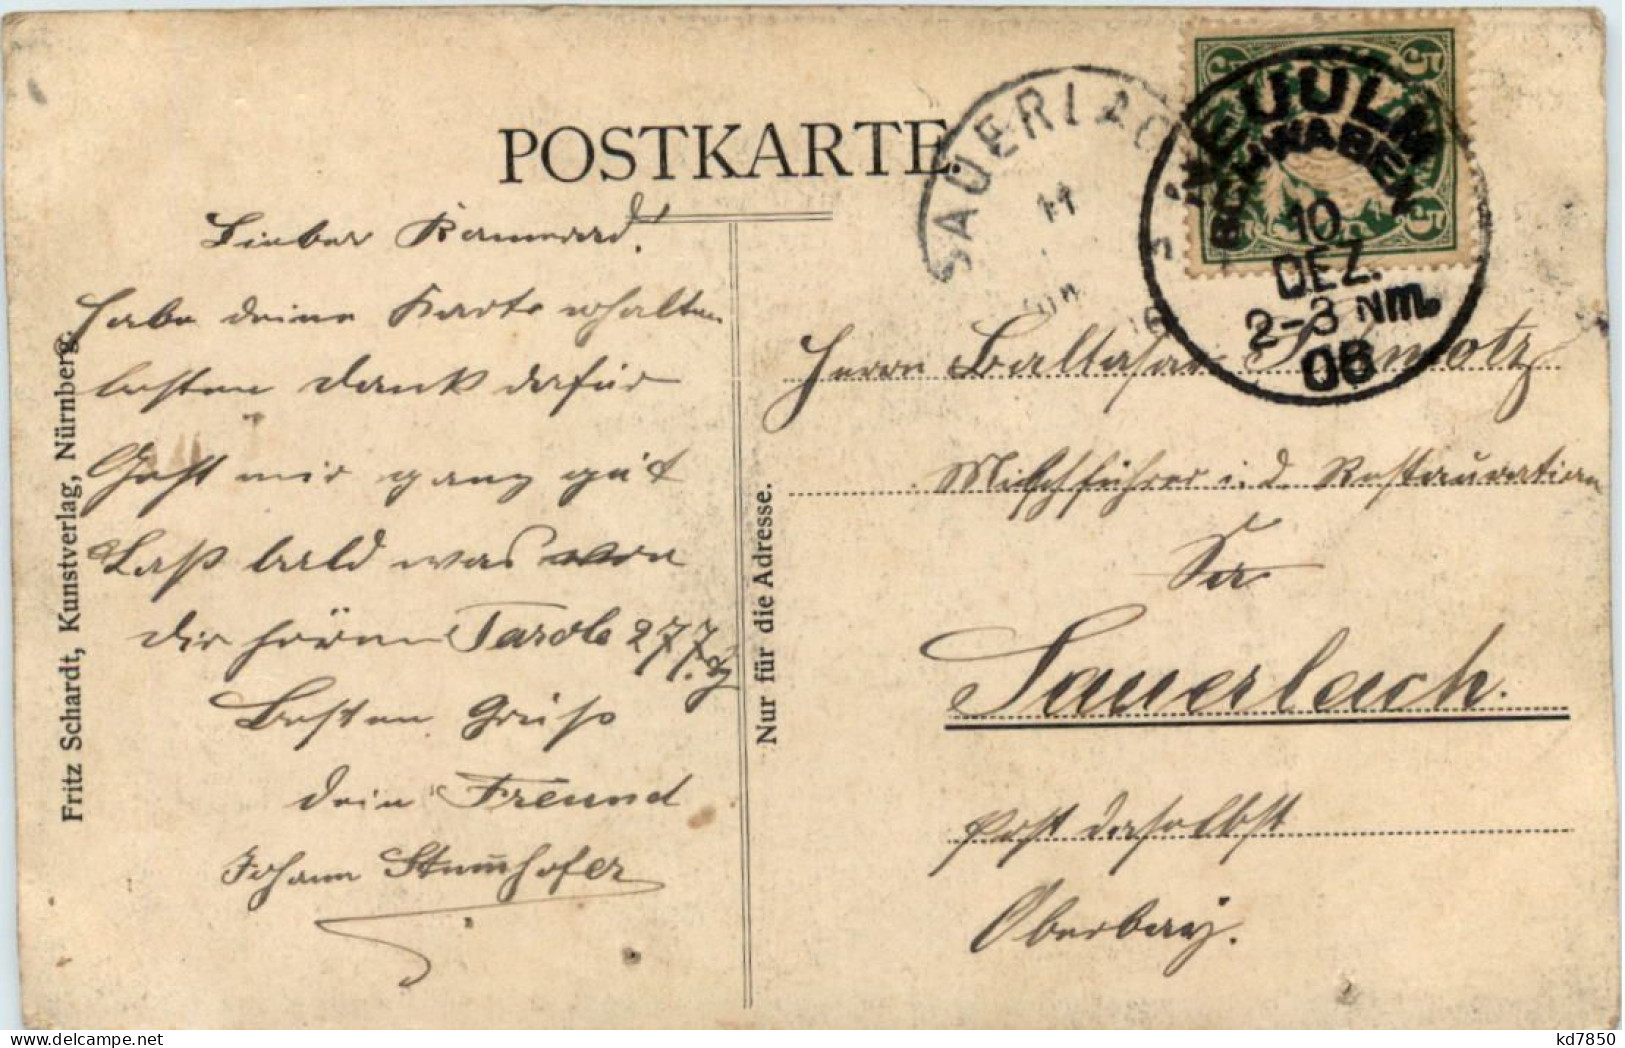 POSTKARTE.
Lieber Kamerad!
Habe deine Karte erhalten
besten Dank dafür
Geht mir ganz gut
Laß bald was von
dir hören Parole 277.
Besten Gruß
dein Freund
Johann Stummhofer
Fritz Schardt, Kunstverlag, Nürnberg.
Nur für die Adresse.
SAUERLAC
11
NEUULM
SCHWABEN
10
DEZ.
2-3 Nm.
06
5 5
5
Herrn Baltasar
Milchführer i. d. Restauration
Sauerlach.
Post daselbst
Oberbay.
kd7850